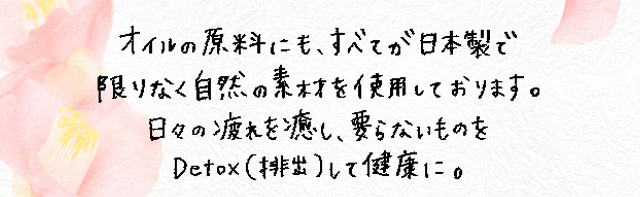 オイルの原料にも、すべてが日本製で
限りなく自然の素材を使用しております。
日々の疲れを癒し、要らないものを
Detox(排出)して健康に。